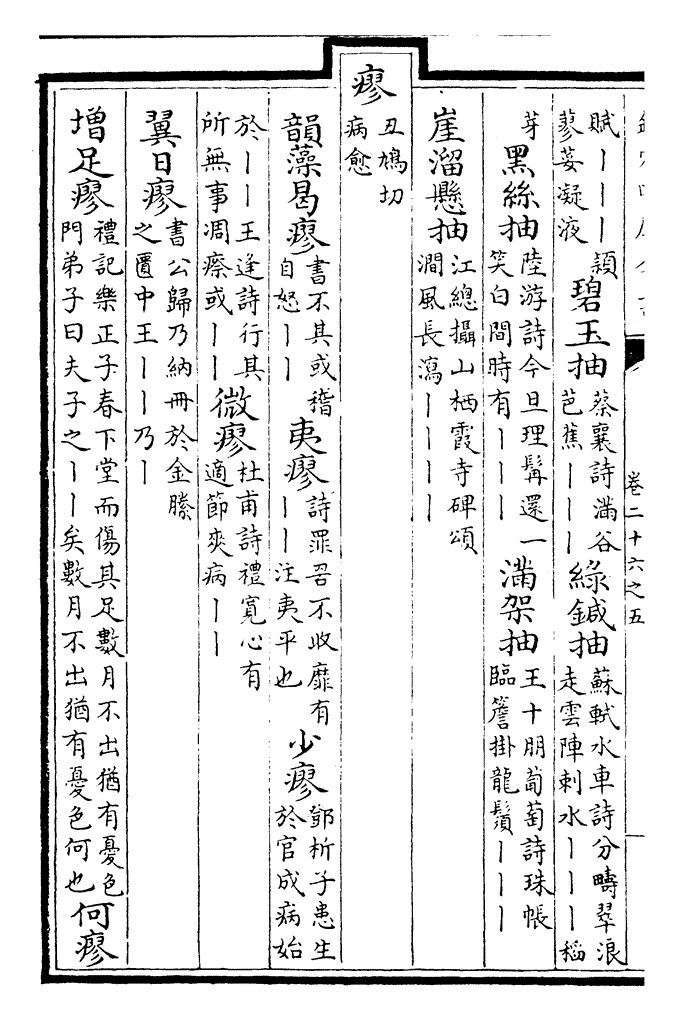 卷二十六之五
賦丨丨丨頴蓼荽凝液 碧玉抽 蔡襄詩滿谷芭蕉丨丨丨 綠鍼抽 蘇軾水車詩分疇翠浪走雲陣刺水丨丨丨稻
芽 黑絲抽 陸游詩今旦理髯還一笑白間時有丨丨丨 滿架抽 王十朋葡萄詩珠帳臨簷掛龍鬚丨丨丨
崖溜懸抽 江總攝山栖霞寺碑頌澗風長瀉丨丨丨丨
瘳 丑鳩切病愈
韻藻曷瘳 書不其或稽自怒丨丨 夷瘳 詩罪罟不收靡有丨丨注夷平也 少瘳 鄧析子患生於官成病始
於丨丨王逢詩行其所無事凋瘵或丨丨 微瘳 杜甫詩禮寬心有適節爽病丨丨
翼日瘳 書公歸乃納冊於金縢之匱中王丨丨乃丨
增足瘳 禮記樂正子春下堂而傷其足數月不出猶有憂色門弟子曰夫子之丨丨矣數月不出猶有憂色何也 何瘳